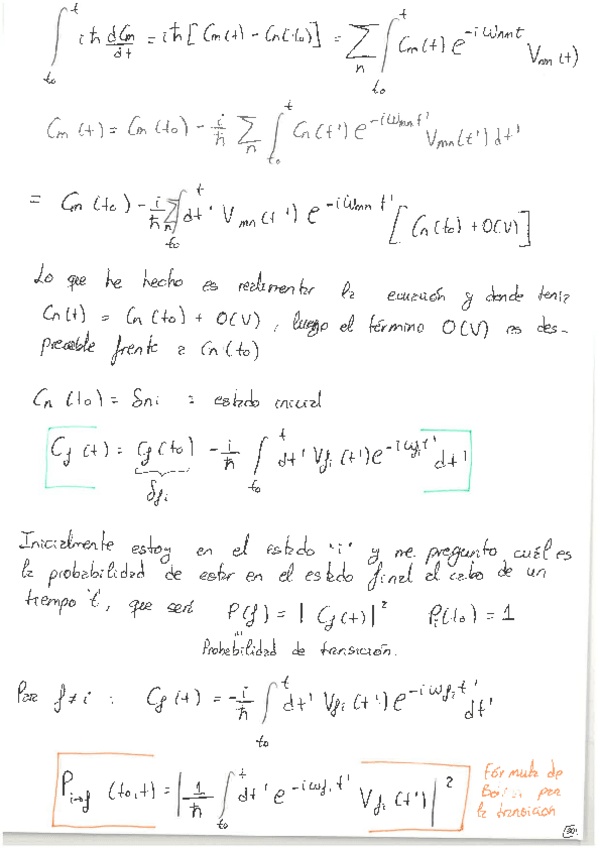 ∫_{t₀}^{t} iħ dCm/dt = iħ [Cm(t) - Cm(t₀)] = Σ_n ∫_{t₀}^{t} Cm(t) e^{-iωmnt} Vmn(t)
Cm(t) = Cm(t₀) - i/ħ Σ_n ∫_{t₀}^{t} Cn(t') e^{-iωmnt'} Vmn(t') dt'
= Cm(t₀) - i/ħ Σ_n ∫_{t₀}^{t} dt' Vmn(t') e^{-iωmnt'} [Cn(t₀) + O(V)]
Lo que he hecho es realimentar la ecuación y donde tenía
Cn(t) = Cn(t₀) + O(V), luego el término O(V) es des-
preciable frente a Cn(t₀)
Cn(t₀) = δni = estado inicial
Cf(t) = Cf(t₀) - i/ħ ∫_{t₀}^{t} dt' Vfi(t') e^{-iωfit'} dt'
δfi
Inicialmente estoy en el estado "i" y me pregunto cuál es
la probabilidad de estar en el estado final al cabo de un
tiempo 't', que será P(f) = |Cf(t)|² Pi(t₀) = 1
Probabilidad de transición.
Para f≠i : Cf(t) = -i/ħ ∫_{t₀}^{t} dt' Vfi(t') e^{-iωfit'} dt'
P_{i→f}(t₀,t) = |1/ħ ∫_{t₀}^{t} dt' e^{-iωfit'} Vfi(t')|²
Fórmula de
para
la transición